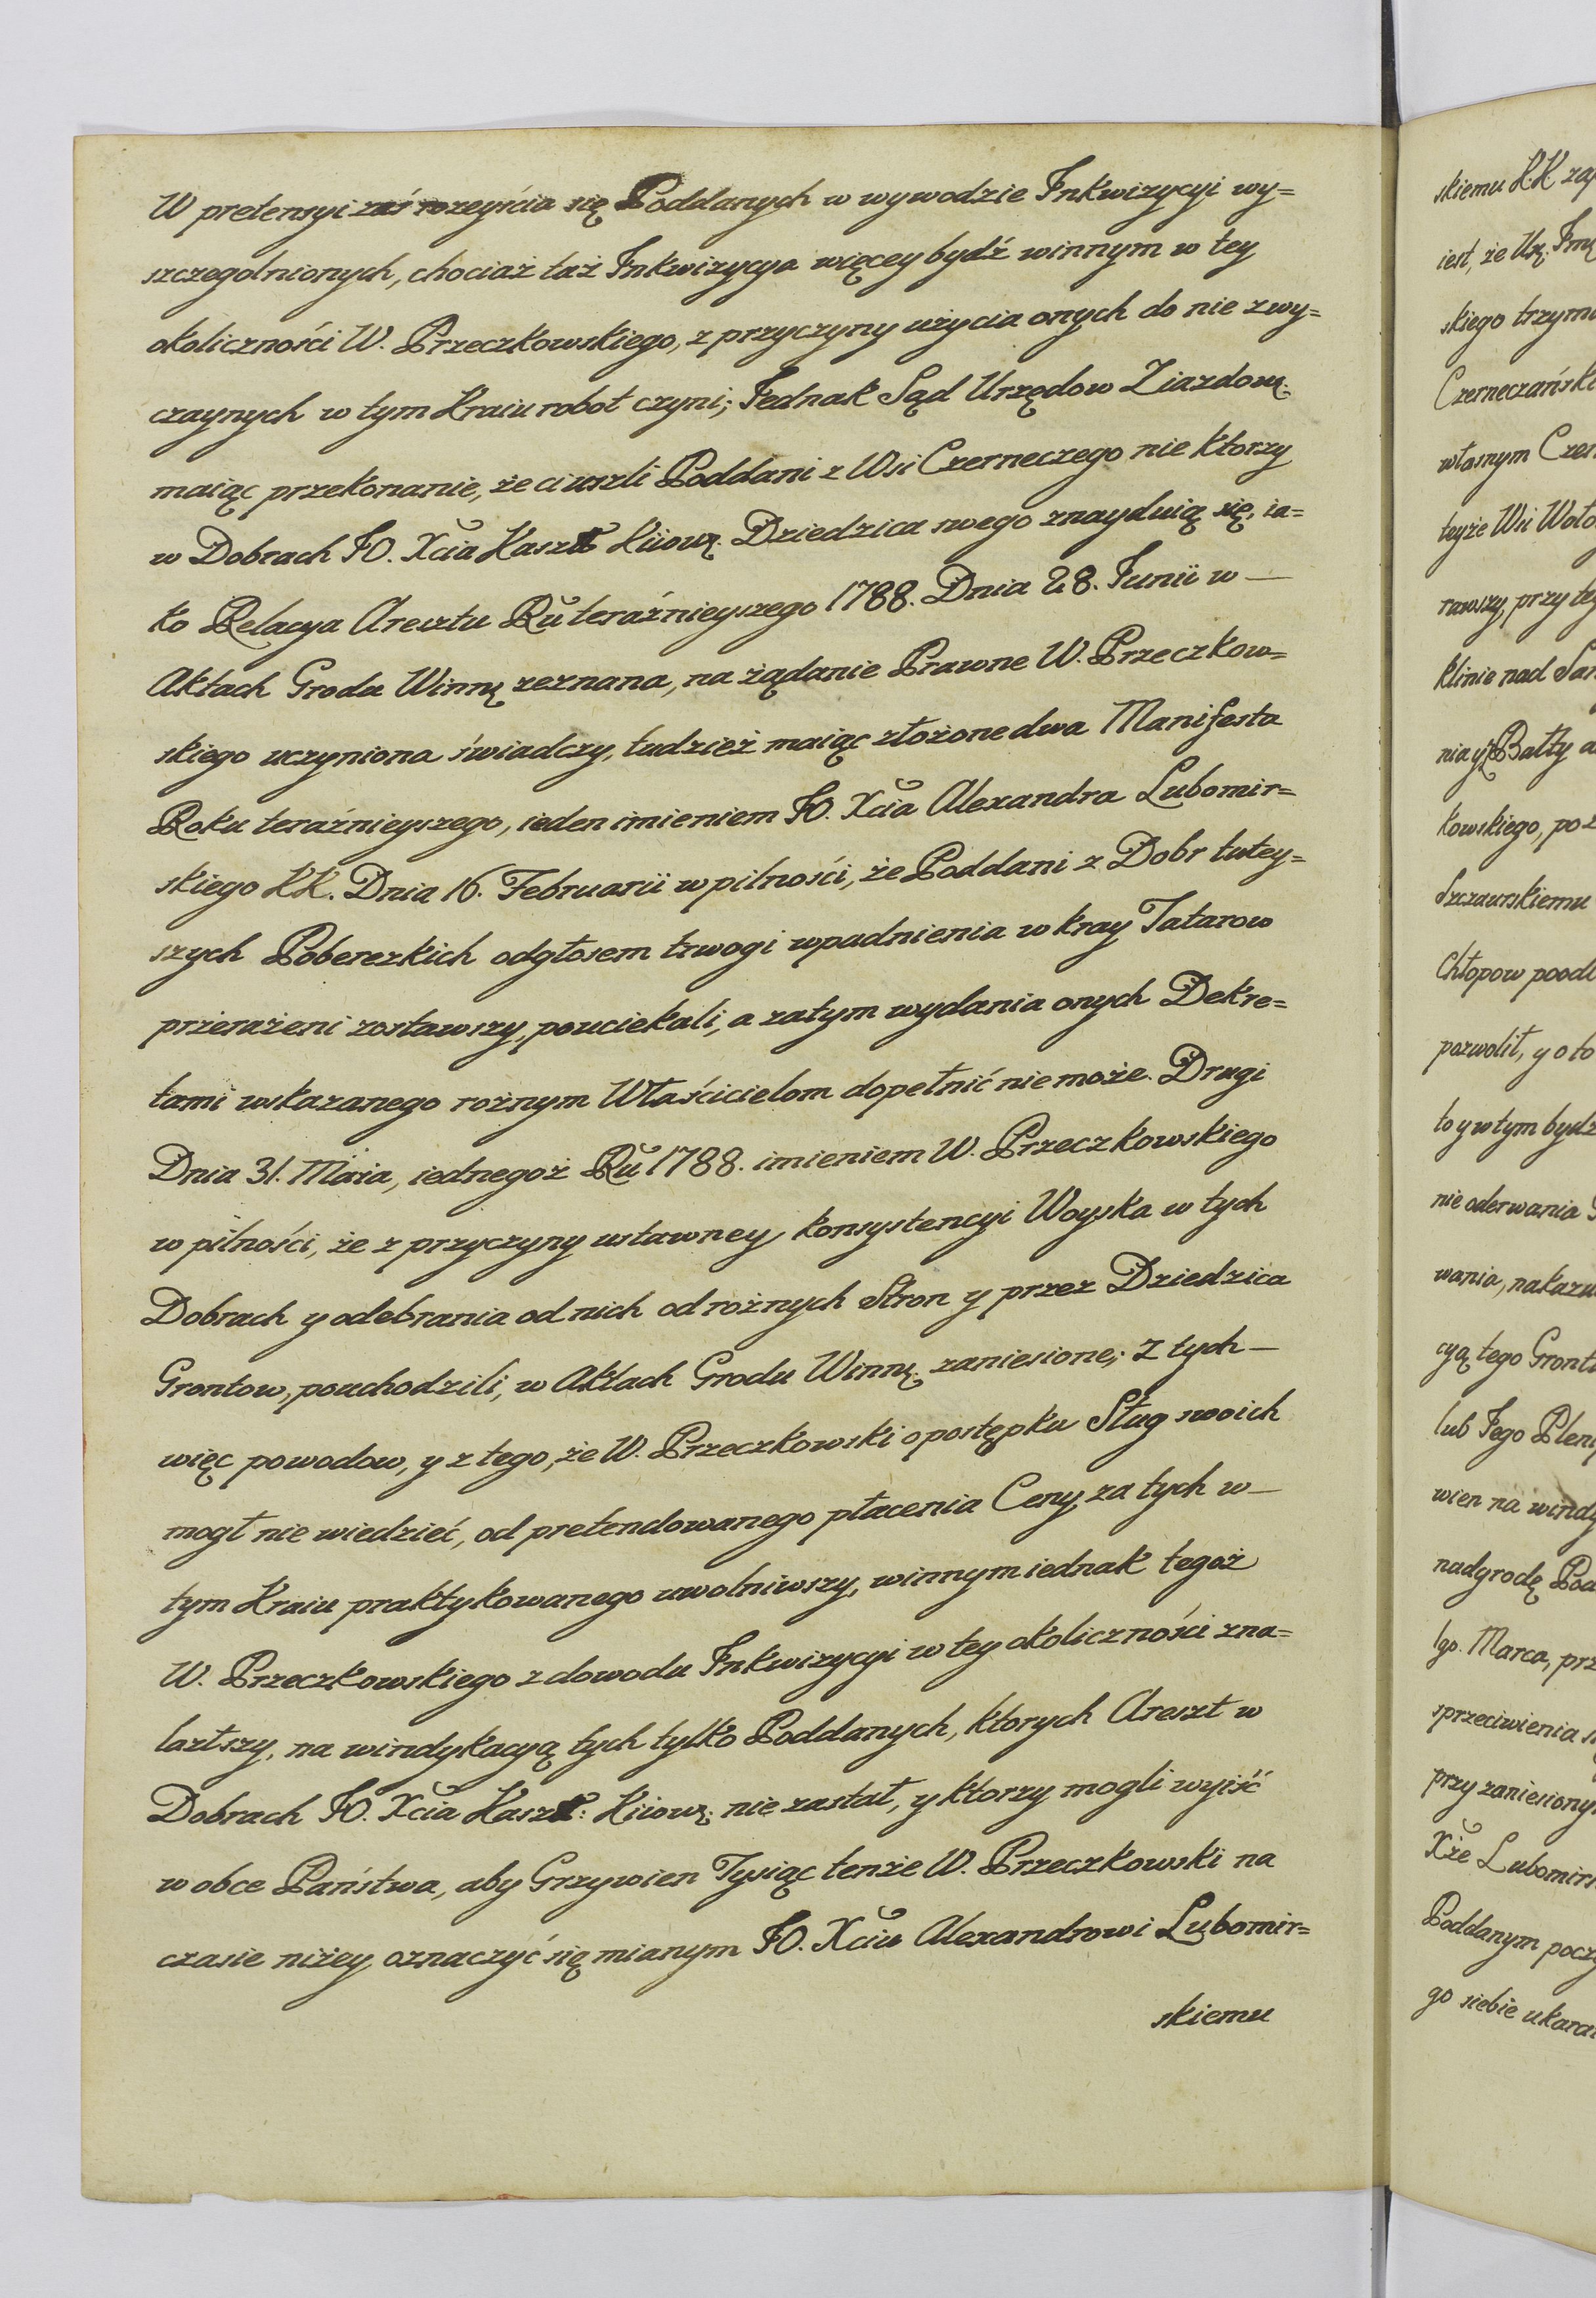 W pretensyi zaś rozeyścia się Poddanych w wywodzie Inkwizycyi wy=
szczegolnionych, chociaż taż Inkwizycya więcey bydź winnym w tey
okoliczności W. Przeczkowskiego, z przyczyny użycia onych do nie zwy=
czaynych w tym Kraiu robot czyni; Jednak Sąd Urzędow Ziazdow:
maiąc przekonanie, że ci uszli Poddani z Wsi Czerneczego nie ktorzy
w Dobrach JO. Xcia Kaszt Kiiow: Dziedzica swego znayduią się, ia=
ko Relacya Aresztu Ru teraźnieyszego 1788. Dnia 28. Junii w —
Aktach Grodu Winn: zeznana, na żądanie Prawne W. Przeczkow=
skiego uczyniona świadczy, tudzież maiąc złożone dwa Manifesta
Roku teraźnieyszego, ieden imieniem JO. Xcia Alexandra Lubomir=
skiego KK. Dnia 16. Februarii w pilności, że Poddani z Dobr tutey=
szych Poberezkich odgłosem trwogi wpadnienia w kray Tatarow
przerażeni zostawszy, pouciekali, a zatym wydania onych Dekre=
tami wskazanego rożnym Właścicielom dopełnić nie może. Drugi
Dnia 31. Maia, iednegoż Ru 1788. imieniem W. Przeczkowskiego
w pilności, że z przyczyny ustawney konsystencyi Woyska w tych
Dobrach y odebrania od nich od rożnych Stron y przez Dziedzica
Grontow, pouchodzili, w Aktach Grodu Winn: zaniesione; Z tych —
więc powodow, y z tego, że W. Przeczkowski o postępku Sług swoich
mogł nie wiedzieć, od pretendowanego płacenia Ceny za tych w —
tym Kraiu praktykowanego uwolniwszy, winnym iednak tegoż
W. Przeczkowskiego z dowodu Inkwizycyi w tey okoliczności zna=
lazłszy, na windykacyą tych tylko Poddanych, ktorych Areszt w
Dobrach JO. Xcia Kaszt: Kiiow: nie zastał, y ktorzy mogli wyiść
w obce Państwa, aby Grzywien Tysiąc tenże W. Przeczkowski na
czasie niżey oznaczyć się mianym JO. Xciu Alexandrowi Lubomir=
skiemu
skiemu KK
iest, że
skiego
własnym
teyże Wsi
rawszy, przy
klinie nad
Bałty
kowskiego,
Szczawskiemu
Chłopow
pozwolił, y o to
to y w tym
nie oderwania
wania,
cyą tego
lub Jego
wien na
nadgrodę
1go. Marca,
sprzeciwienia
przy
Xże
Poddanym
go siebie